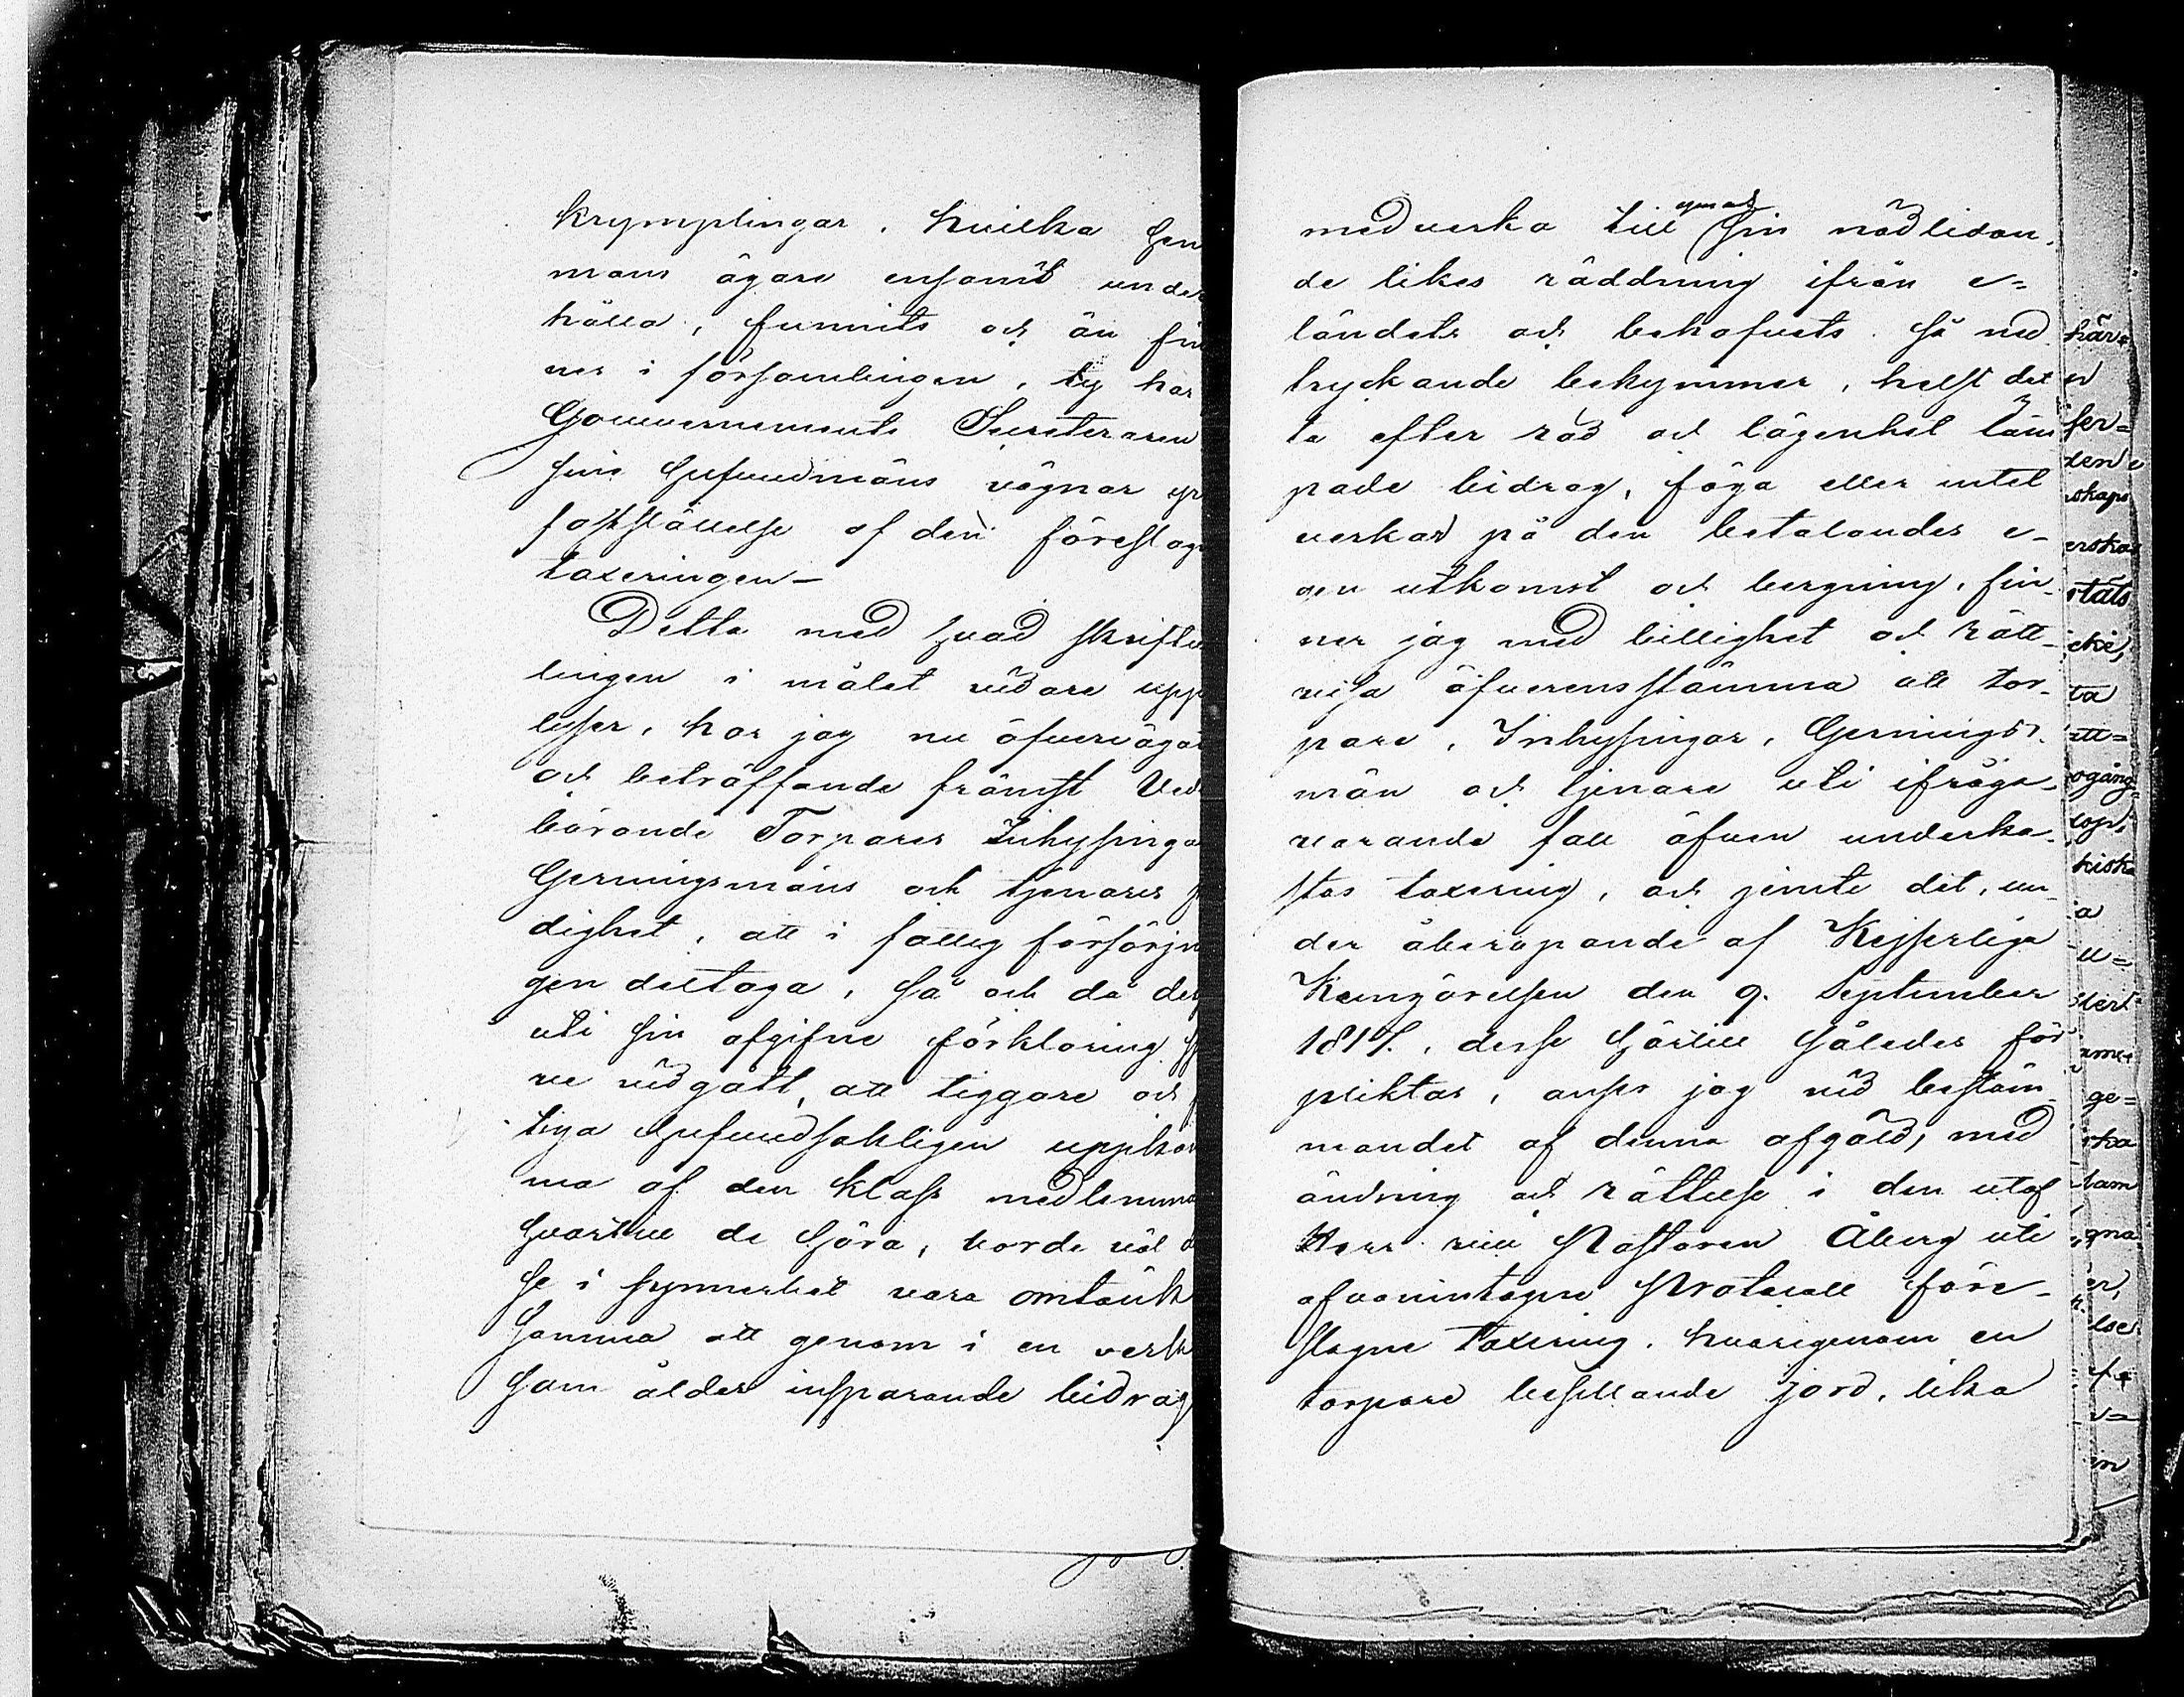 krymplingar, hvilka Hem
mans ägare ensamt under
hålla, funnits och än fin
nes i församlingen, ty har
Gouvernements Secreteraren
sine Hufvudmäns vägnar yr
fastställelse af den föreslag
taxeringen —
Detta med hvad skriftve
lingen i målet vidare upp
lyser, har jag nu öfvervägat
och beträffande främst Ved
börande Torpares Inhysinga
Gerningsmäns och tjenares p
dighet, att i fattig försörjn
gen deltaga, så och då des
uti sin afgifne förklaring sj
ve vidgått, att tiggare och
tiga hufvudsakligen uppkom
ma af den klass medlemma
hvartill de höra, borde väl d
se i synnerhet vara omtänk
samma att genom i en verk
sam ålder insparande bidrag
medverka till egnas sin nödlidan
de likes räddning ifrån e=
ländets och behofvets så ned
tryckande bekymmer, helst det
ta efter råd och lägenhet läm
pade bidrag, föga eller intet
verkar på den betalandes e-
gen utkomst och bergning, fin-
ner jag med billighet och rätt-
visa öfverensstämma att tor-
pare, Inhysingar, Gernings-
män och tjenare uti ifråga-
varande fall äfven underka-
stas taxering, och jemte det, un-
der åberopande af Kejserliga
Kungörelsen den 9. September
1817., desse härtill således för
pliktas, anser jag vid bestäm-
mandet af denna afgäld, med
ändring och rättelse i den utaf
Herr vice Pastoren Åberg uti
ofvanintagne Protocoll före-
slagne taxering, hvarigenom en
torpare besittande jord, lika
här=
fer=
den
skaps
erskas
stäts
icke,
ta
ett=
ogång
hiska
a
u=
ge=
ska
tam
gna
er,
lse